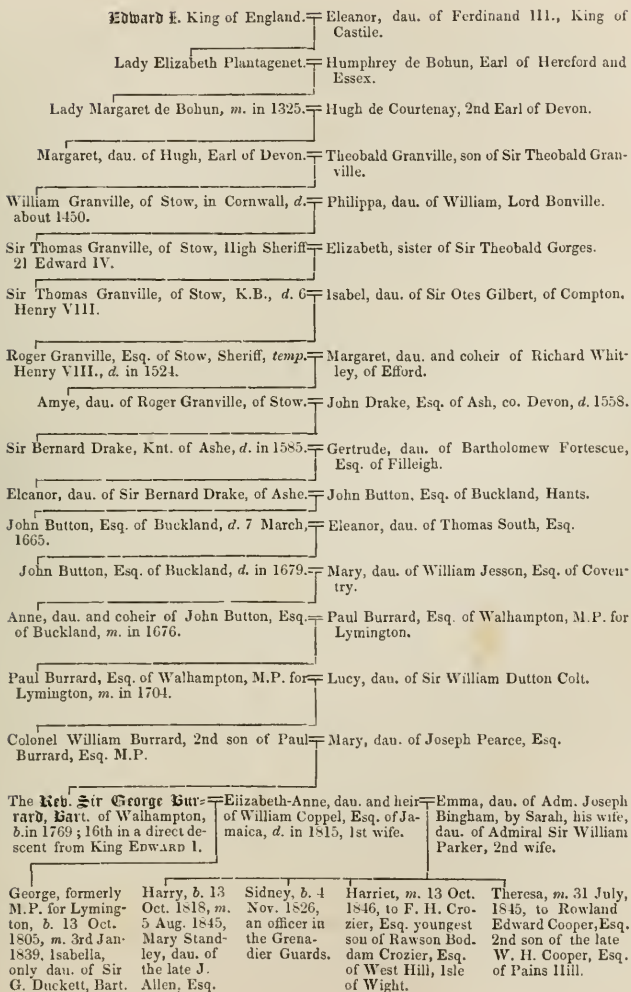 Edward I. King of England. Eleanor, dau. of Ferdinand III., King of
Castile.
Lady Elizabeth Plantagenet. Humphrey de Bohun, Earl of Hereford and
Essex.
Lady Margaret de Bohun, m. in 1325. Hugh de Courtenay, 2nd Earl of Devon.
Margaret, dau. of Hugh, Earl of Devon. Theobald Granville, son of Sir Theobald Gran-
ville.
William Granville, of Stow, in Cornwall, d. Philippa, dau. of William, Lord Bonville.
about 1450.
Sir Thomas Granville, of Stow, High Sheriff Elizabeth, sister of Sir Theobald Gorges.
21 Edward IV.
Sir Thomas Granville, of Stow, K.B., d. 6 Isabel, dau. of Sir Otes Gilbert, of Compton.
Henry VIII.
Roger Granville, Esq. of Stow, Sheriff, temp. Margaret, dau. and coheir of Richard Whit-
Henry VIII., d. in 1524. ley, of Efford.
Amye, dau. of Roger Granville, of Stow. John Drake, Esq. of Ash, co. Devon, d. 1558.
Sir Bernard Drake, Knt. of Ashe, d. in 1585. Gertrude, dau. of Bartholomew Fortescue,
Esq. of Filleigh.
Eleanor, dau. of Sir Bernard Drake, of Ashe. John Button, Esq. of Buckland, Hants.
John Button, Esq. of Buckland, d. 7 March, Eleanor, dau. of Thomas South, Esq.
1665.
John Button, Esq. of Buckland, d. in 1679. Mary, dau. of William Jesson, Esq. of Coven-
try.
Anne, dau. and coheir of John Button, Esq. Paul Burrard, Esq. of Walhampton, M.P. for
of Buckland, m. in 1676. Lymington.
Paul Burrard, Esq. of Walhampton, M.P. for Lucy, dau. of Sir William Dutton Colt.
Lymington, m. in 1704.
Colonel William Burrard, 2nd son of Paul Mary, dau. of Joseph Pearce, Esq.
Burrard, Esq. M.P.
The Rev. Sir George Bur-
rard, Bart. of Walhampton,
b. in 1769; 16th in a direct de-
scent from King EDWARD I.
Elizabeth-Anne, dau. and heir
of William Coppel, Esq. of Ja-
maica, d. in 1815, 1st wife.
Emma, dau. of Adm. Joseph
Bingham, by Sarah, his wife,
dau. of Admiral Sir William
Parker, 2nd wife.
George, formerly
M.P. for Lyming-
ton, b. 13 Oct.
1805, m. 3rd Jan.
1839, Isabella,
only dau. of Sir
G. Duckett, Bart.
Harry, b. 13
Oct. 1818, m.
5 Aug. 1845,
Mary Stand-
ley, dau. of
the late J.
Allen, Esq.
Sidney, b. 4
Nov. 1826,
an officer in
the Grena-
dier Guards.
Harriet, m. 13 Oct.
1846, to F. H. Cro-
zier, Esq. youngest
son of Rawson Bod-
dam Crozier, Esq.
of West Hill, Isle
of Wight.
Theresa, m. 31 July,
1845, to Rowland
Edward Cooper, Esq.
2nd son of the late
W. H. Cooper, Esq.
of Pains Hill.